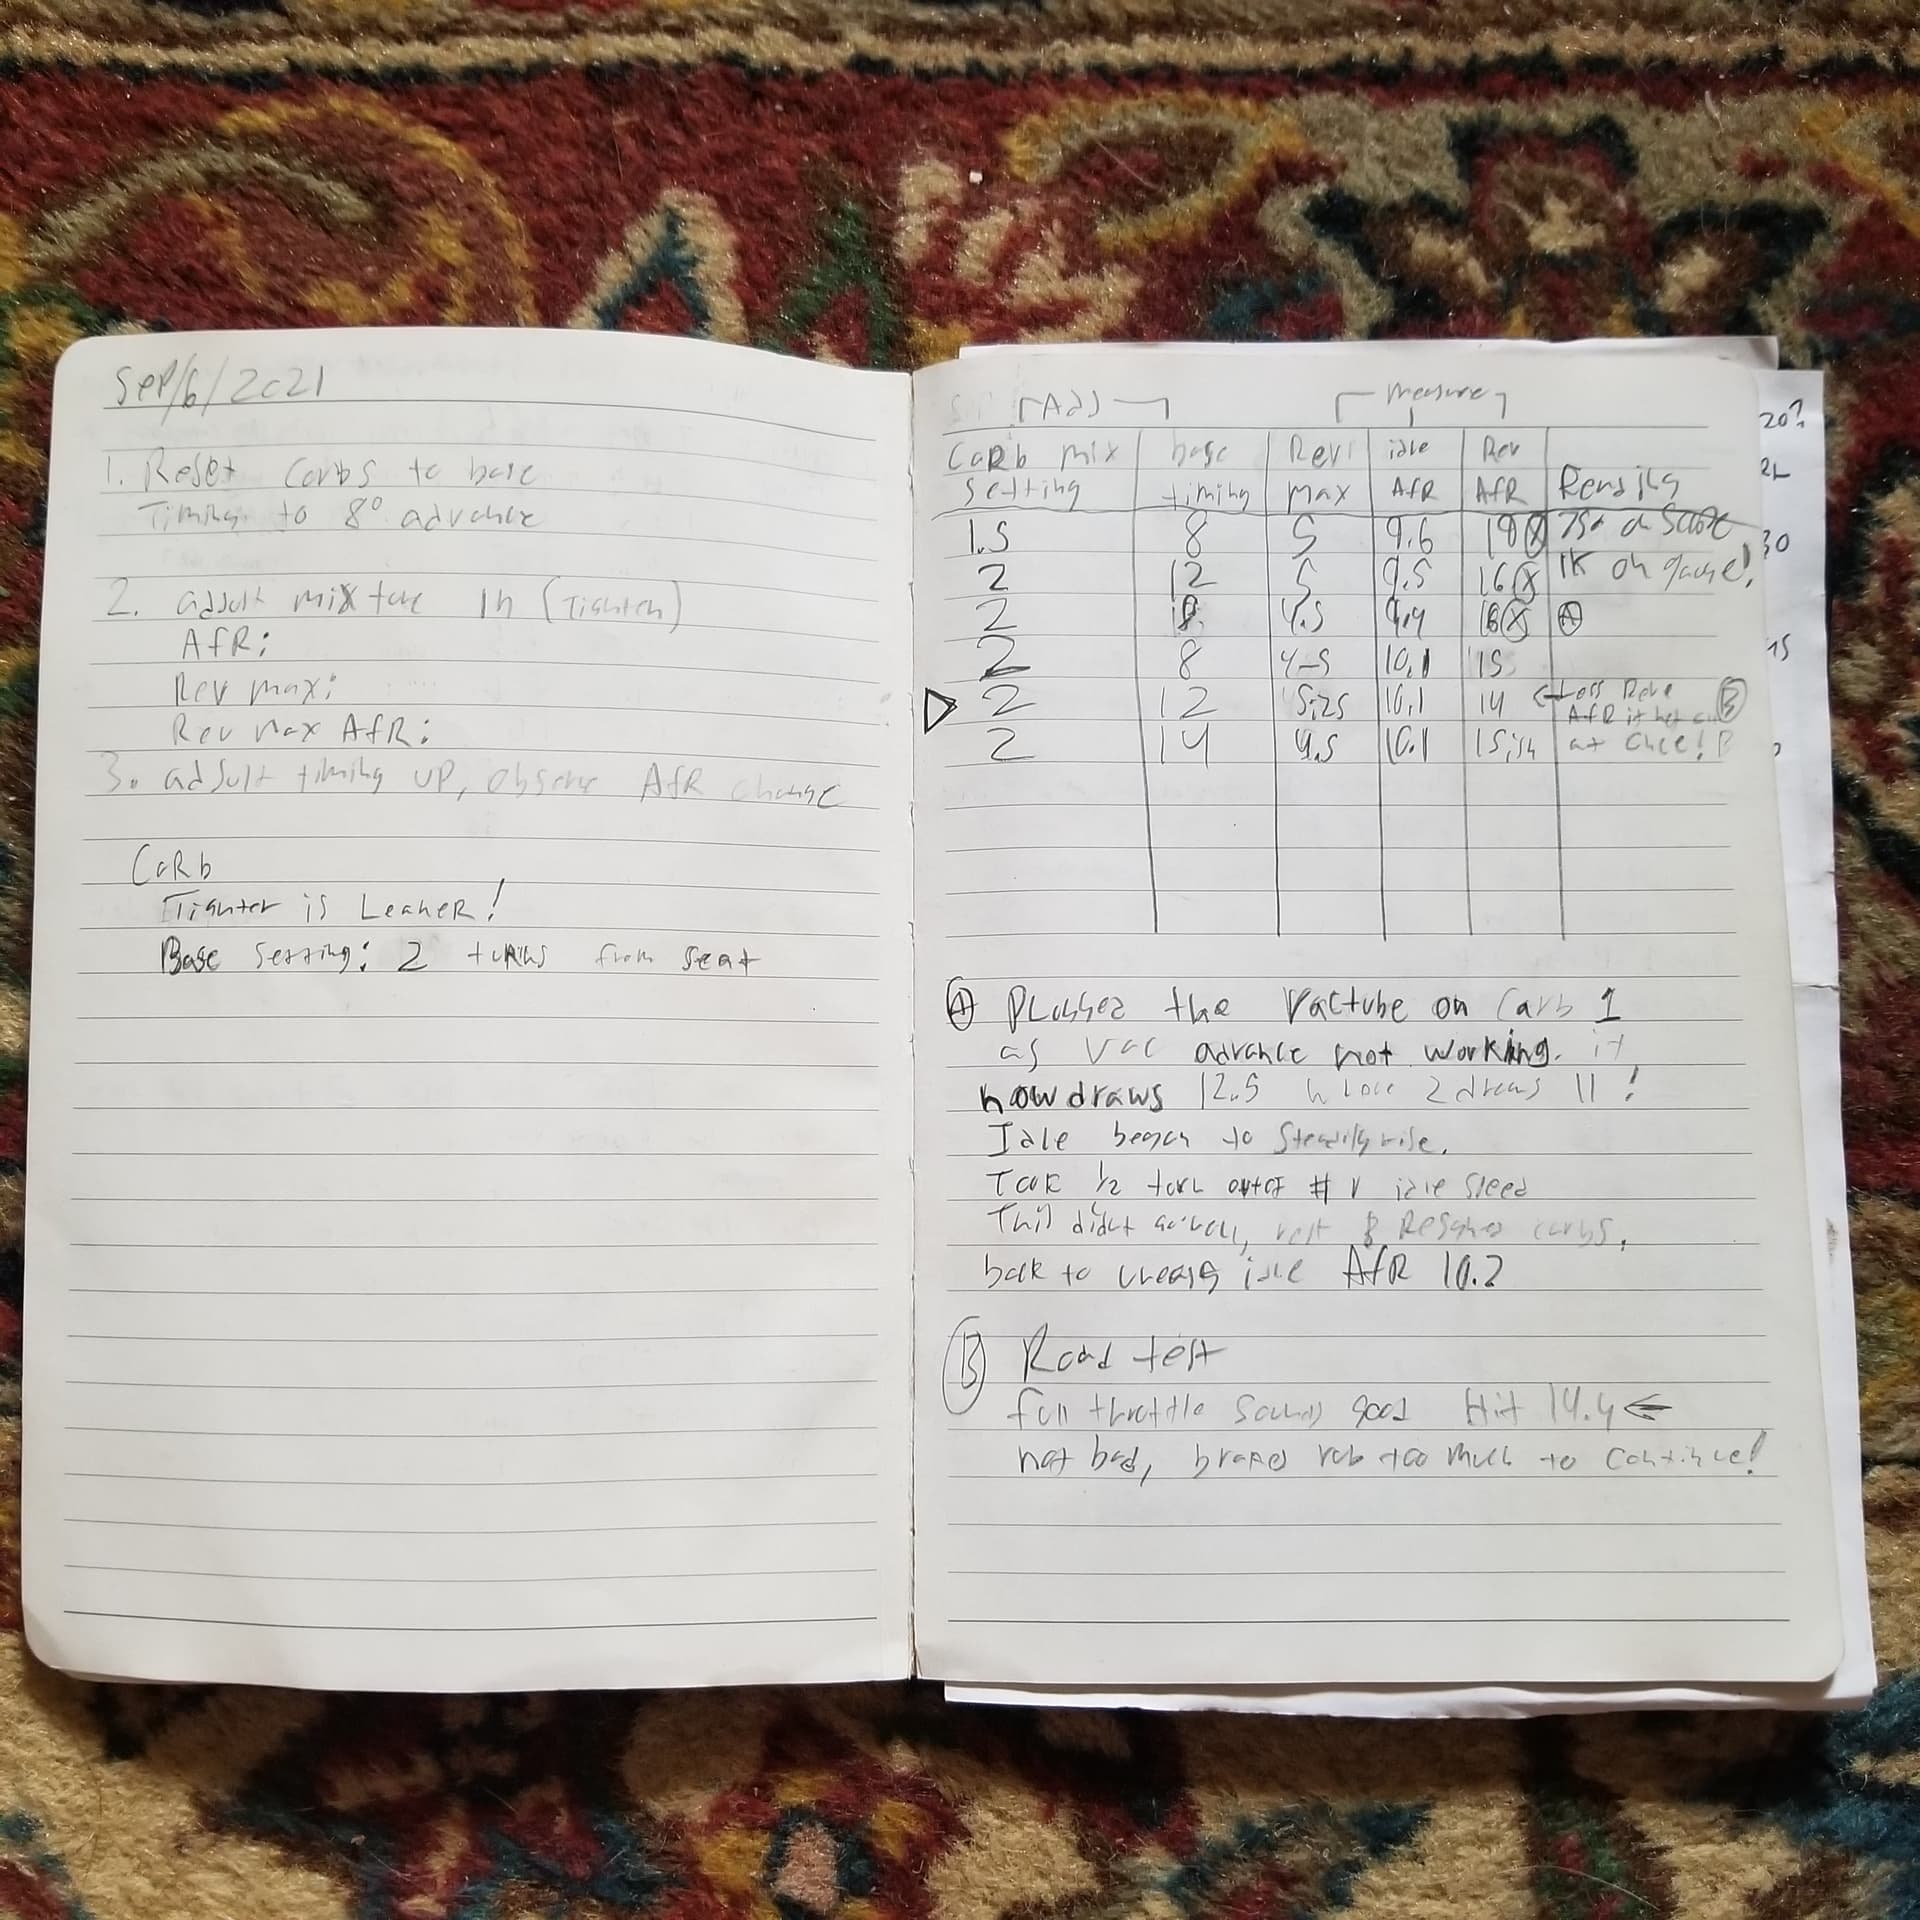 Sep/6/2021
1. Reset Carbs to base
Timing to 8° advance
2. adjust mixture in (Tighten)
AfR:
Rev max:
Rev Max AfR:
3. adjust timing up, observe AfR change
CaRb
Tighter is LeaneR!
Base Setting: 2 turns from Seat
Adj
measure
CaRb mix base Rev idle Rev
Setting timing max AfR AfR
1.5 8 5 9.6 18
2 12 5 9.5 16 1K on gauge!
2 4.5 9.4 A
2 8 4-5 10.1 15
2 12 10.1 14 B
2 14 4.5 10.1 15ish at once!
A Plugged the Vactube on Carb 1
as Vac advance not working. it
now draws 12.5 2 draws 11!
Idle began to Steadily rise.
Took 1/2 turn out of # 1 idle speed
This didnt carbs.
back to idle AfR 10.2
B Road test
full throttle Sounds good Hit 14.4 ←
not bad, brakes rub too much to continue!
20?
30
15